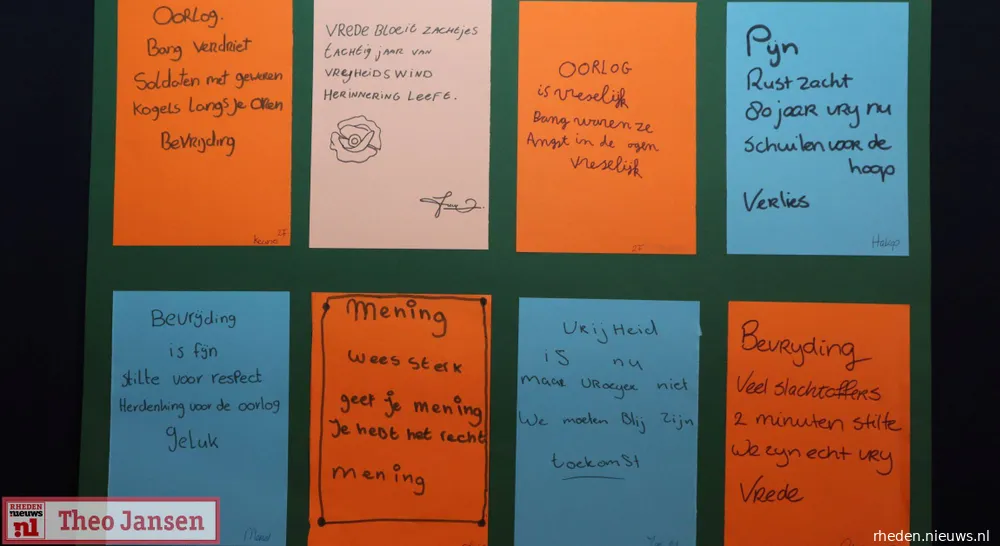 OORLOG.
Bang verdriet
Soldaten met geweren
Kogels langs je oren
Bevrijding
VREDE BLOEIT ZACHTJES
TACHTIG JAAR VAN
VRIJHEIDSWIND
HERINNERING LEEFT.
OORLOG
is vreselijk
Bang waren ze
Angst in de ogen
Vreselijk
Pijn
Rust zacht
80 jaar vrij nu
Schuilen voor de
hoop
Verlies
Bevrijding
is fijn
Stilte voor respect
Herdenking voor de oorlog
geluk
Mening
wees sterk
geef je mening
Je hebt het recht
mening
VRIJHEID
is nu
maar vroeger niet
We moeten blij zijn
toekomst
Bevrijding
Veel slachtoffers
2 minuten stilte
We zijn echt vrij
Vrede
RHEDEN
nieuws
.nl
Theo Jansen
rheden.nieuws.nl